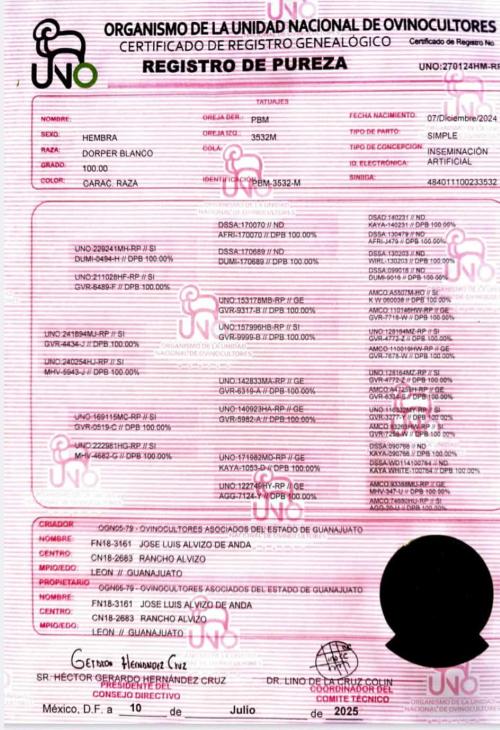 UNO
ORGANISMO DE LA UNIDAD NACIONAL DE OVINOCULTORES
CERTIFICADO DE REGISTRO GENEALÓGICO
Certificado de Registro No.
REGISTRO DE PUREZA
UNO:270124HM-RP
TATUAJES
NOMBRE:
OREJA DER.: PBM
FECHA NACIMIENTO: 07/Diciembre/2024
SEXO: HEMBRA
OREJA IZQ.: 3532M
TIPO DE PARTO: SIMPLE
RAZA: DORPER BLANCO
COLA:
TIPO DE CONCEPCION: INSEMINACIÓN ARTIFICIAL
GRADO: 100.00
ID. ELECTRÓNICA:
COLOR: CARAC. RAZA
IDENTIFICACIÓN: PBM-3532-M
SINIIGA: 484011100233532
UNO:241894MJ-RP // SI
GVR-4434-J // DPB 100.00%
UNO:240254HJ-RP // SI
MHV-5943-J // DPB 100.00%
UNO:229241MH-RP // SI
DUMI-0494-H // DPB 100.00%
UNO:211028HF-RP // SI
GVR-6489-F // DPB 100.00%
UNO:169115MC-RP // SI
GVR-0519-C // DPB 100.00%
UNO:222981HG-RP // SI
MHV-4682-G // DPB 100.00%
DSSA:170070 // ND
AFRI-170070 // DPB 100.00%
DSSA:170689 // ND
DUMI-170689 // DPB 100.00%
UNO:153178MB-RP // GE
GVR-9317-B // DPB 100.00%
UNO:157996HB-RP // GE
GVR-9999-B // DPB 100.00%
UNO:142833MA-RP // GE
GVR-6319-A // DPB 100.00%
UNO:140923HA-RP // GE
GVR-5982-A // DPB 100.00%
UNO:171682MD-RP // GE
KAYA-1053-D // DPB 100.00%
UNO:122749HY-RP // GE
AGG-7124-Y // DPB 100.00%
DSAD:140231 // ND
KAYA-140231 // DPB 100.00%
DSSA:130479 // ND
AFRI-J479 // DPB 100.00%
DSSA:130203 // ND
WIRL-130203 // DPB 100.00%
DSSA:099018 // ND
DUMI-9018 // DPB 100.00%
// SI
K W 060038 // DPB 100.00%
AMCO:110146HW-RP // GE
GVR-7718-W // DPB 100.00%
UNO:128164MZ-RP // SI
GVR-4772-Z // DPB 100.00%
AMCO:110019HW-RP // GE
GVR-7678-W // DPB 100.00%
UNO:128164MZ-RP // SI
GVR-4772-Z // DPB 100.00%
// DPB 100.00%
// SI
GVR-3277-Y // DPB 100.00%
GVR-7258-W // DPB 100.00%
DSSA:090766 // ND
KAYA-090766 // DPB 100.00%
DSSA:WD114100764 // ND
KAYA WHITE-100764 // DPB 100.00%
AMCO:93388MU-RP // GE
MHV-347-U // DPB 100.00%
// GE
AGG-20-U // DPB 100.00%
CRIADOR OGN05-79 - OVINOCULTORES ASOCIADOS DEL ESTADO DE GUANAJUATO
NOMBRE: FN18-3161 JOSE LUIS ALVIZO DE ANDA
CENTRO CN18-2683 RANCHO ALVIZO
MPIO/EDO: LEON // GUANAJUATO
PROPIETARIO OGN05-79 - OVINOCULTORES ASOCIADOS DEL ESTADO DE GUANAJUATO
NOMBRE: FN18-3161 JOSE LUIS ALVIZO DE ANDA
CENTRO: CN18-2683 RANCHO ALVIZO
MPIO/EDO: LEON // GUANAJUATO
Gerardo Hernández Cruz
SR. HÉCTOR GERARDO HERNÁNDEZ CRUZ
PRESIDENTE DEL
CONSEJO DIRECTIVO
DR. LINO DE LA CRUZ COLIN
COORDINADOR DEL
COMITÉ TÉCNICO
México, D.F. a 10 de Julio de 2025